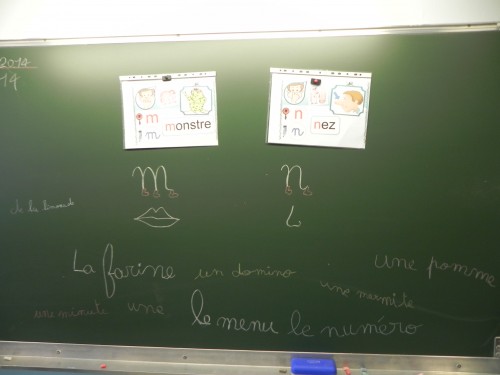 2014
14
m
m
monstre
n
n
nez
m
n
de la limonade
La farine un domino une pomme
une marmite
une minute une le menu le numéro